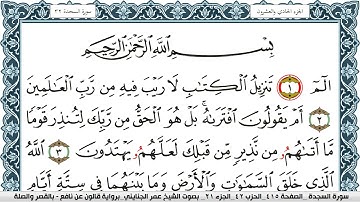 الجزء الحادي والعشرون
سورة السجدة ٣٢
بِسْمِ اللَّهِ الرَّحْمَٰنِ الرَّحِيمِ
الٓمٓ ١ تَنزِيلُ الْكِتَٰبِ لَا رَيْبَ فِيهِ مِن رَّبِّ الْعَٰلَمِينَ
٢ أَمْ يَقُولُونَ افْتَرَىٰهُ بَلْ هُوَ الْحَقُّ مِن رَّبِّكَ لِتُنذِرَ قَوْمًا
مَّا أَتَىٰهُم مِّن نَّذِيرٍ مِّن قَبْلِكَ لَعَلَّهُمْ يَهْتَدُونَ ٣ اللَّهُ
الَّذِي خَلَقَ السَّمَٰوَٰتِ وَالْأَرْضَ وَمَا بَيْنَهُمَا فِي سِتَّةِ أَيَّامٍ
سورة السجدة - الصفحة ٤١٥ - الحزب ٤٢ - الجزء ٢١ - بصوت الشيخ عمر الجنايني - برواية قالون عن نافع - بالقصر والصلة